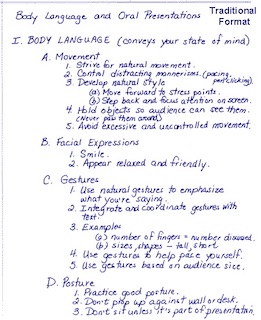 Body Language and Oral Presentations
Traditional
Format
I. BODY LANGUAGE (conveys your state of mind)
A. Movement
1. Strive for natural movement.
2. Control distracting mannerisms. (pacing,
pen clicking)
3. Develop natural style
(a) Move forward to stress points.
(b) Step back and focus attention on screen.
4. Hold objects so audience can see them.
(Never pass them around)
5. Avoid excessive and uncontrolled movement.
B. Facial Expressions
1. Smile.
2. Appear relaxed and friendly.
C. Gestures
1. Use natural gestures to emphasize
what you're saying.
2. Integrate and coordinate gestures with
text.
3. Examples
(a) number of fingers = number discussed.
(b) sizes, shapes - tall, short
4. Use gestures to help pace yourself.
5. Use gestures based on audience size.
D. Posture
1. Practice good posture.
2. Don't prop up against wall or desk.
3. Don't sit unless it's part of presentation.